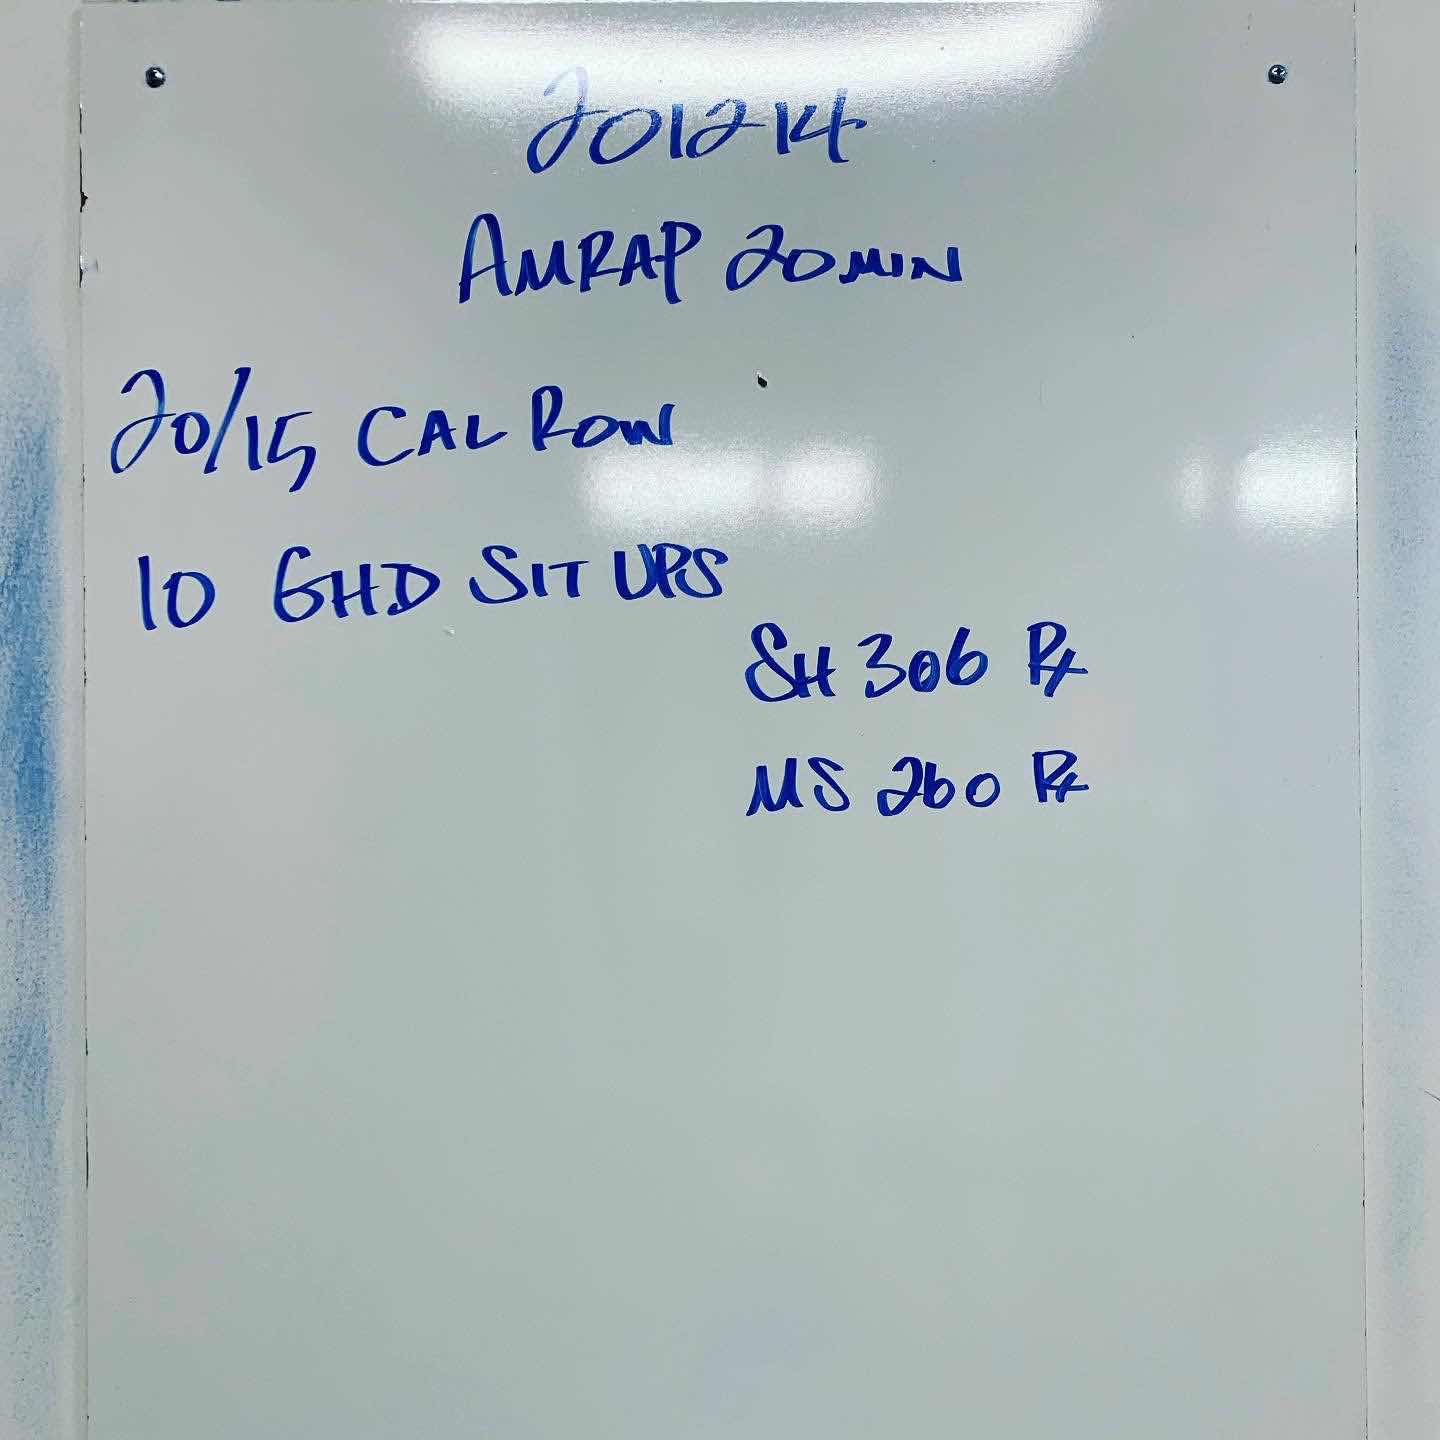 201214
AMRAP 20 MIN
20/15 CAL ROW
10 GHD SIT UPS
SH 306 Rx
MS 260 Rx